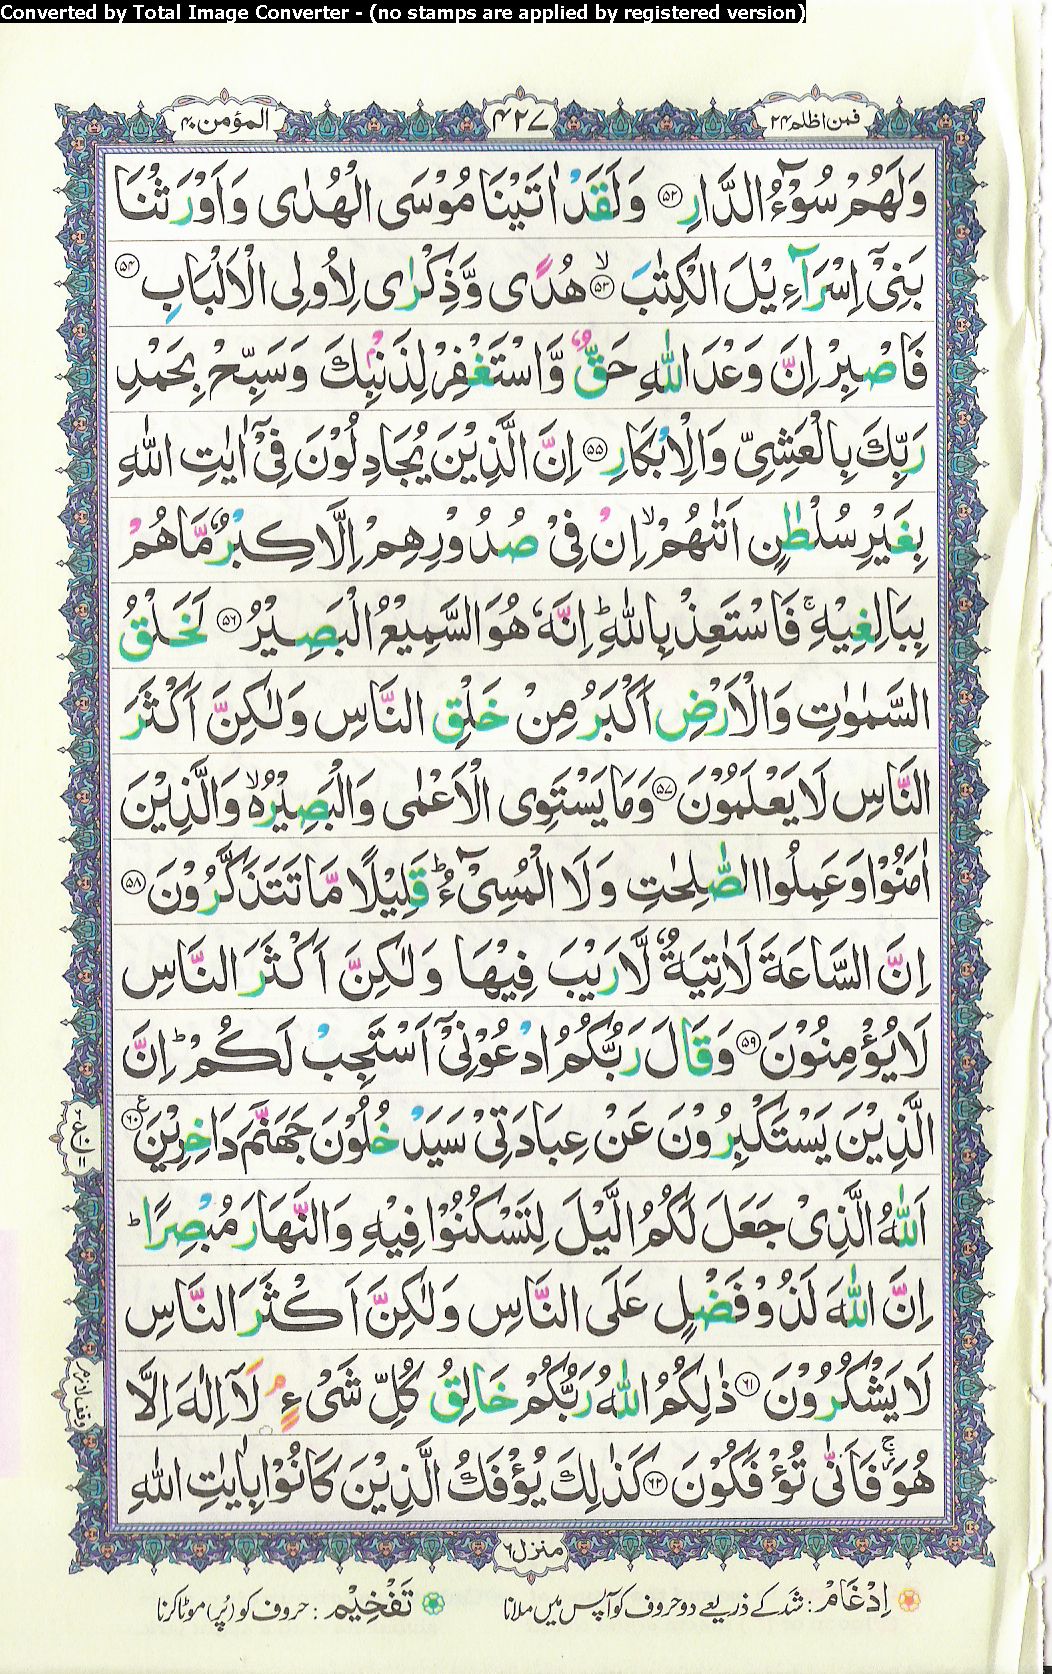 Converted by Total Image Converter - (no stamps are applied by registered version)
فمن اظلم ۲۴
۴۲۷
المؤمن ۴۰
وَلَهُمْ سُوْٓءُ الدَّارِ ۝۵۲ وَلَقَدْ اٰتَيْنَا مُوْسَى الْهُدٰى وَاَوْرَثْنَا
بَنِيْٓ اِسْرَآءِيْلَ الْكِتٰبَ ۝۵۳ۙ هُدًى وَّذِكْرٰى لِاُولِى الْاَلْبَابِ ۝۵۴
فَاصْبِرْ اِنَّ وَعْدَ اللّٰهِ حَقٌّ وَّاسْتَغْفِرْ لِذَنْۢبِكَ وَسَبِّحْ بِحَمْدِ
رَبِّكَ بِالْعَشِىِّ وَالْاِبْكَارِ ۝۵۵ اِنَّ الَّذِيْنَ يُجَادِلُوْنَ فِىْٓ اٰيٰتِ اللّٰهِ
بِغَيْرِ سُلْطٰنٍ اَتٰىهُمْ ۙ اِنْ فِىْ صُدُوْرِهِمْ اِلَّا كِبْرٌ مَّا هُمْ
بِبَالِغِيْهِ ۚ فَاسْتَعِذْ بِاللّٰهِ ؕ اِنَّهٗ هُوَ السَّمِيْعُ الْبَصِيْرُ ۝۵۶ لَخَلْقُ
السَّمٰوٰتِ وَالْاَرْضِ اَكْبَرُ مِنْ خَلْقِ النَّاسِ وَلٰكِنَّ اَكْثَرَ
النَّاسِ لَا يَعْلَمُوْنَ ۝۵۷ وَمَا يَسْتَوِى الْاَعْمٰى وَالْبَصِيْرُ ۙ۬ وَالَّذِيْنَ
اٰمَنُوْا وَعَمِلُوا الصّٰلِحٰتِ وَلَا الْمُسِىْٓءُ ؕ قَلِيْلًا مَّا تَتَذَكَّرُوْنَ ۝۵۸
اِنَّ السَّاعَةَ لَاٰتِيَةٌ لَّا رَيْبَ فِيْهَا وَلٰكِنَّ اَكْثَرَ النَّاسِ
لَا يُؤْمِنُوْنَ ۝۵۹ وَقَالَ رَبُّكُمُ ادْعُوْنِىْٓ اَسْتَجِبْ لَكُمْ ؕ اِنَّ
الَّذِيْنَ يَسْتَكْبِرُوْنَ عَنْ عِبَادَتِىْ سَيَدْخُلُوْنَ جَهَنَّمَ دَاخِرِيْنَ ۝۶۰ ع
اَللّٰهُ الَّذِىْ جَعَلَ لَكُمُ الَّيْلَ لِتَسْكُنُوْا فِيْهِ وَالنَّهَارَ مُبْصِرًا ؕ
اِنَّ اللّٰهَ لَذُوْ فَضْلٍ عَلَى النَّاسِ وَلٰكِنَّ اَكْثَرَ النَّاسِ
لَا يَشْكُرُوْنَ ۝۶۱ ذٰلِكُمُ اللّٰهُ رَبُّكُمْ خَالِقُ كُلِّ شَىْءٍ ۘ لَآ اِلٰهَ اِلَّا
وقف لازم
هُوَ ۚ فَاَنّٰى تُؤْفَكُوْنَ ۝۶۲ كَذٰلِكَ يُؤْفَكُ الَّذِيْنَ كَانُوْا بِاٰيٰتِ اللّٰهِ
منزل ۶
اِدْغَامْ : شد کے ذریعے دو حروف کو آپس میں ملانا
تَفْخِيْمْ : حروف کو (پُر) موٹا کرنا